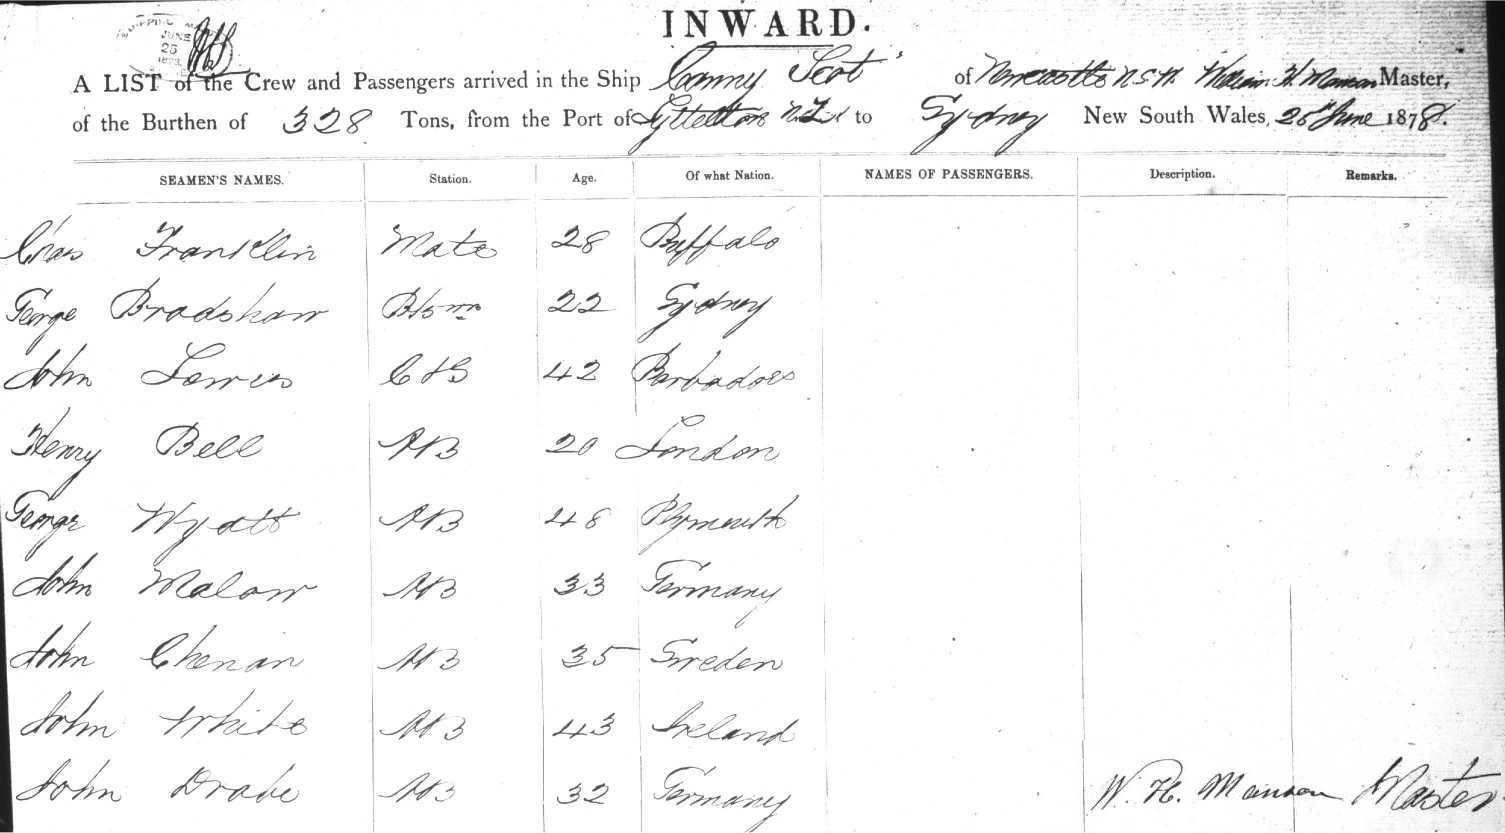 SHIPPING
JUNE
25
1878
INWARD.
A LIST of the Crew and Passengers arrived in the Ship Canny Scot of Newcastle N.S.W. William H. Master,
of the Burthen of 328 Tons, from the Port of Lyttelton N.Z. to Sydney New South Wales, 25th June 1878.
SEAMEN'S NAMES. Station. Age. Of what Nation. NAMES OF PASSENGERS. Description. Remarks.
Chas Franklin Mate 28 Buffalo
George Bradshaw 22 Sydney
John Lewis C & S 42 Barbadoes
Henry Bell AB 20 London
George Wyatt AB 48 Plymouth
John Malow AB 33 Germany
John Chenan AB 35 Sweden
John White AB 43 Ireland
John Drabe AB 32 Germany
W. H. Master